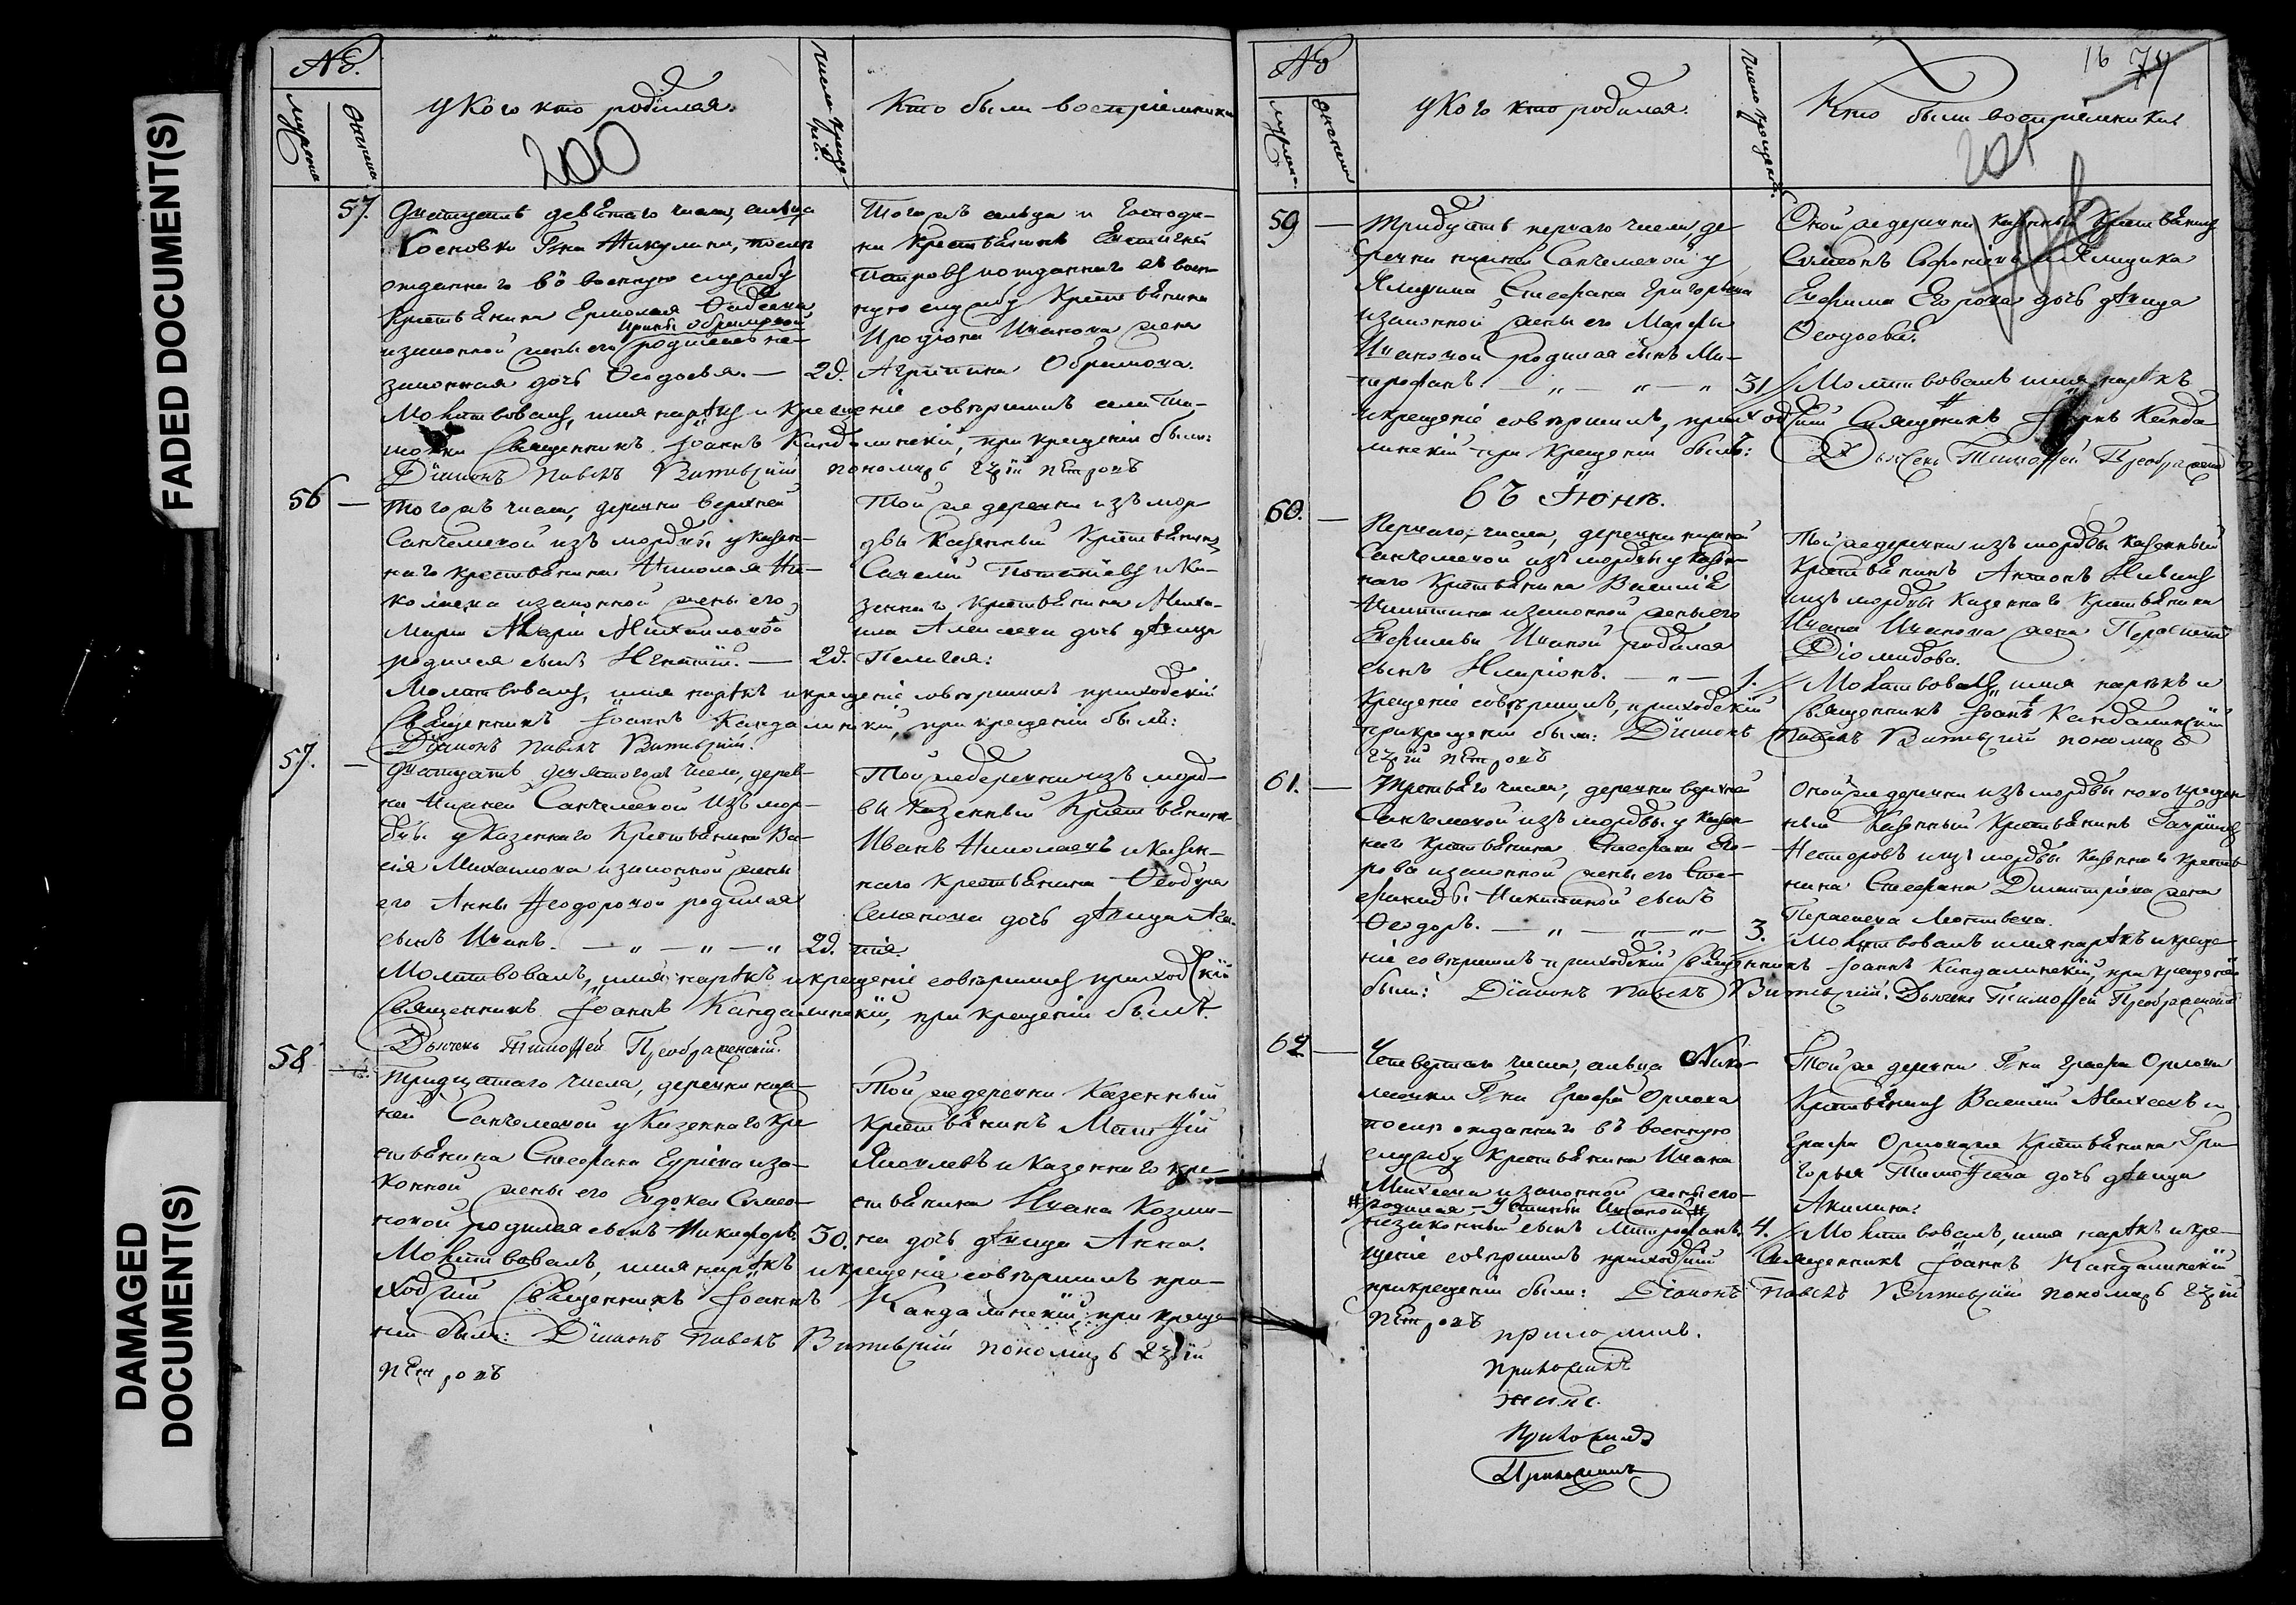 FADED DOCUMENT(S)
DAMAGED
DOCUMENT(S)
№.
мужска
женска
у Кого кто родился.
200
число креще-
ній.
Кто были воспріемники
57.
Дватцать девѣтаго числа, сельца
Сосновки Гна Никулина, после
отданнаго въ военную службу
Крестьянина Ермолая
изаконной жены его родилась не-
законная дочь Ѳеодосья. — 29.
Тогожъ сельца и Господи-
на Крестьянинъ Евстигней
Петровъ и отданнаго въ воен-
ную службу Крестьянина
Иродіона Иванова жена
Агрипина Обрамова.
Молитвовалъ, имя нарѣкъ и Крещеніе совершилъ села
Священникъ Іоаннъ Кандалинскій, при крещеніи были:
Діаконъ Павелъ Витевскій пономарь Петровъ
56 —
Тогожъ числа, деревни верхней
Санчелеевой изъ мордвы у казен-
наго крестьянина Николая Ни-
колаева изаконной жены его
Маріи Михаиловой
родился сынъ Игнатій. — 29.
Той же деревни изъ мор-
двы Казенный Крестьянинъ
Савелій Потапіевъ и Ка-
зеннаго Крестьянина Миха-
ила Алексеева дочь дѣвица
Пелагея:
Молитвовалъ, имя нарѣкъ и крещеніе совершилъ приходскій
Священникъ Іоаннъ Кандалинскій, при крещеніи былъ:
Діаконъ Павелъ Витевскій.
57. —
Дватцать девятогожъ числа, дерев-
ни Нижней Санчелеевой Изъ мор-
двы у Казеннаго Крестьянина Ва-
силія Михаилова изаконной жены
его Анны Ѳеодоровой родился
сынъ Иванъ. — „ — „ — „ 29.
Той же деревни изъ морд-
вы Казенный Крестьянинъ
Иванъ Николаевъ и казен-
наго Крестьянина Ѳеодора
Семенова дочь дѣвица Ага-
пія.
Молитвовалъ, имя нарѣкъ и крещеніе совершилъ приходскій
Священникъ Іоаннъ Кандалинскій, при крещеніи былъ:
Дьячекъ Тимоѳей Преображенскій.
58 —
Тридцатаго числа, деревни ниж-
ней Санчелеевой у Казеннаго Кре-
стьянина Стефана изза-
конной жены его Евдокеи Симео-
новой родился сынъ Никифоръ. 30.
Той же деревни Казенный
Крестьянинъ Матѳій
Яковлевъ и Казеннаго кре-
стьянина Ивана Козми-
на дочь дѣвица Анна.
Молитвовалъ, имя нарѣкъ и крещеніе совершилъ при-
ходскій Священникъ Іоаннъ Кандалинскій, при креще-
ніи были: Діаконъ Павелъ Витевскій пономарь
Петровъ
№
мужска.
женска
у Кого кто родился.
число крещеній.
16 74
Кто были воспріемники.
201
59 —
Тридцать перваго числа, де-
ревни нижней Санчелеевой у
Ямщика Стефана Григорьева
изаконной жены его Марфы
Ивановой родился сынъ Ми-
трофанъ. — „ — „ — „ 31
Оной же деревни казенный Крестьянинъ
Симеонъ и Ямщика
Евфима Егорова дочь дѣвица
Ѳеодосья.
Молитвовалъ имя нарѣкъ
и крещеніе совершилъ, приходскій Священникъ Іоаннъ Канда-
линскій при крещеніи былъ: Дьячекъ Тимоѳей Преображенс
бъ Іюнѣ.
60. —
Перваго числа, деревни нижней
Санчелеевой изъ мордвы у казен-
наго Крестьянина Василія
Никитина изаконной жены его
Евфимьи Ивановой родился
сынъ Иларіонъ. — „ — 1.
Той же деревни изъ мордвы казенный
Крестьянинъ Антонъ
и изъ мордвы Казеннаго Крестьянина
Ивана Иванова жена
Діомидова.
Молитвовалъ, имя нарѣкъ и
Крещеніе совершилъ, приходскій священникъ Іоаннъ Кандалинскій
при крещеніи были: Діаконъ Павелъ Витевскій пономарь
Петровъ
61. —
Третьяго числа, деревни верхней
Санчелеевой изъ мордвы у Казен-
наго Крестьянина Стефана Его-
рова изаконной жены его Сте-
фаниды Никитиной сынъ
Ѳеодоръ. — „ — „ — „ 3.
Оной же деревни изъ мордвы новокрещен
ный Казенный Крестьянинъ Гавріилъ
Несторовъ и изъ мордвы казеннаго крестья
нина Стефана Димитріева жена
Параскева Матвеева.
Молитвовалъ имя нарѣкъ и креще-
ніе совершилъ приходскій священникъ Іоаннъ Кандалинскій, при крещеніи
были: Діаконъ Павелъ Витевскій. Дьячекъ Тимоѳей Преображенскій
62 —
Четвертаго числа, сельца Нико-
лаевки Гна Графа Орлова
после отданнаго въ военную
службу Крестьянина Ивана
Михеева изаконной жены его
# родился — Устиньи Ивановой #
незаконный сынъ Митрофанъ. 4.
Той же деревни Гна графа Орлова
Крестьянинъ Василій Михеевъ и
Графа Орловаже Крестьянина Гри-
горья Тимоѳеева дочь дѣвица
Акилина:
Молитвовалъ, имя нарѣкъ и кре-
щеніе совершилъ приходскій Священникъ Іоаннъ Кандалинскій
при крещеніи были: Діаконъ Павелъ Витевскій пономарь
Петровъ